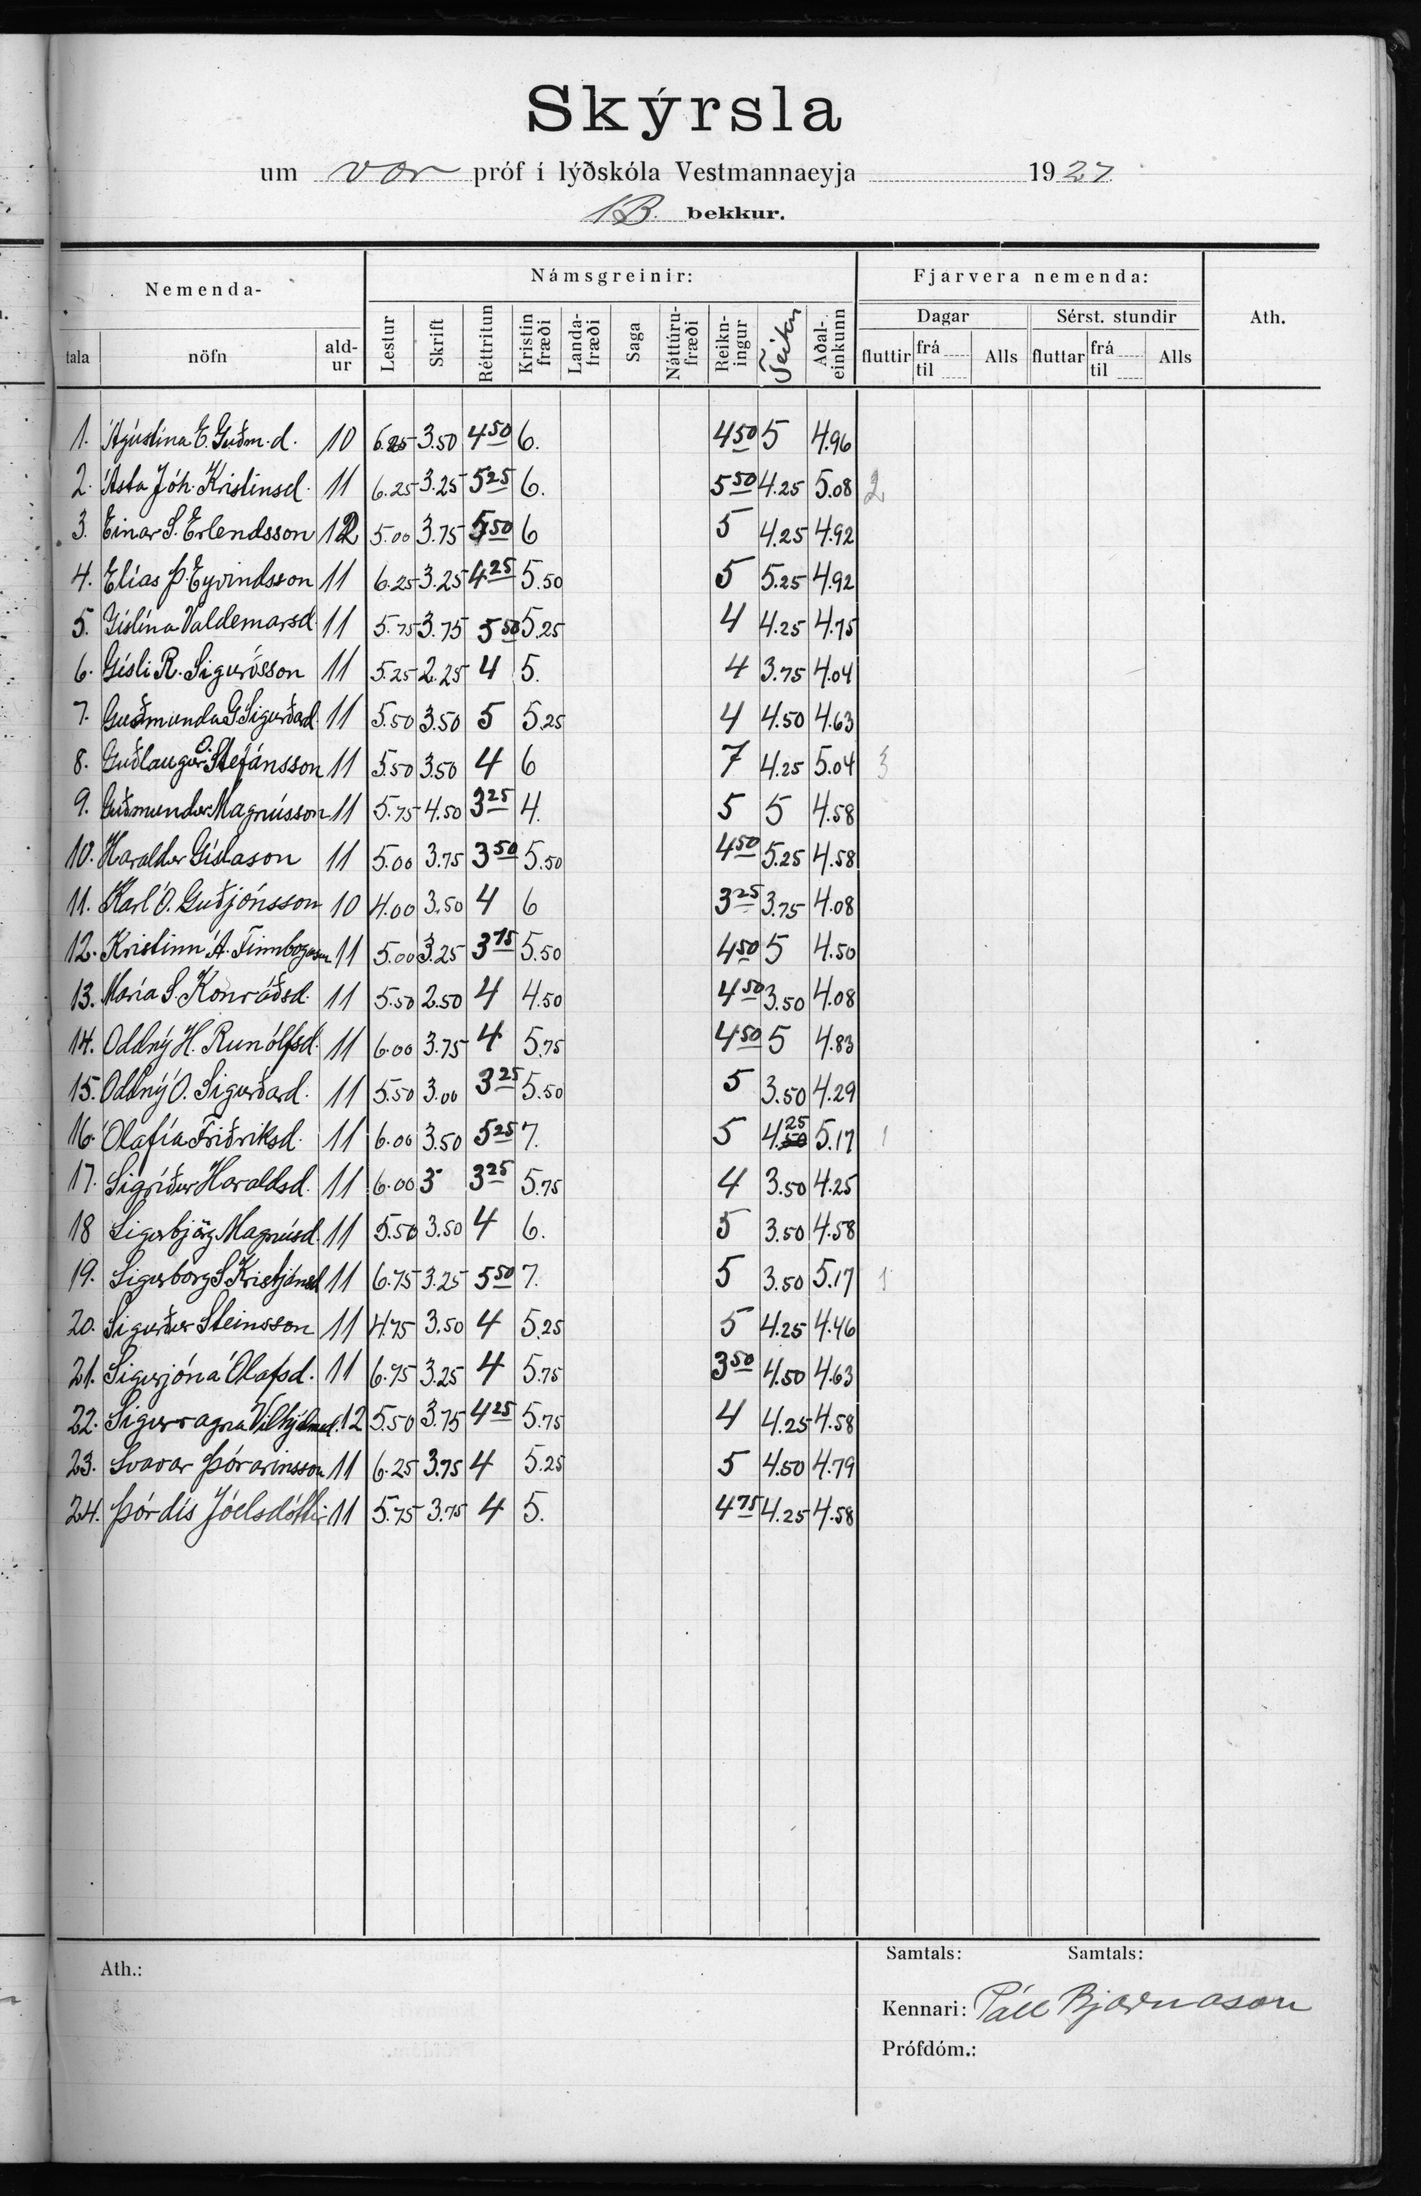 Skýrsla
um vor próf í lýðskóla Vestmannaeyja 1927
1B. bekkur.
Nemenda- Námsgreinir: Fjarvera nemenda: Ath.
Dagar Sérst. stundir
tala nöfn ald-ur Lestur Skrift Réttritun Kristin fræði Landa-fræði Saga Náttúru-fræði Reikn-ingur Teikn Aðal-einkunn fluttir frá til Alls fluttar frá til Alls
1. Ágústína E. Guðm.d. 10 6.25 3.50 4 50 6. 4 50 5 4.96
2. Ásta Jóh. Kristinsd. 11 6.25 3.25 5 25 6. 5 50 4.25 5.08 2
3. Einar S. Erlendsson 12 5.00 3.75 5 50 6 5 4.25 4.92
4. Elías Þ. Eyvindsson 11 6.25 3.25 4 25 5.50 5 5.25 4.92
5. Gíslína Valdemarsd. 11 5.75 3.75 5 50 5.25 4 4.25 4.75
6. Gísli R. Sigurðsson 11 5.25 2.25 4 5. 4 3.75 4.04
7. Guðmunda G Sigurðad. 11 5.50 3.50 5 5.25 4 4.50 4.63
8. Guðlaugur O. Stefánsson 11 5.50 3.50 4 6 7 4.25 5.04 3
9. Guðmundur Magnússon 11 5.75 4.50 3 25 4. 5 5 4.58
10. Haraldur Gíslason 11 5.00 3.75 3 50 5.50 4 50 5.25 4.58
11. Karl Ó. Guðjónsson 10 4.00 3.50 4 6 3 25 3.75 4.08
12. Kristinn Á. Finnbogason 11 5.00 3.25 3 75 5.50 4 50 5 4.50
13. María S. Konráðsd. 11 5.50 2.50 4 4.50 4 50 3.50 4.08
14. Oddný H. Runólfsd. 11 6.00 3.75 4 5.75 4 50 5 4.83
15. Oddný Ó. Sigurðard. 11 5.50 3.00 3 25 5.50 5 3.50 4.29
16. Ólafía Friðriksd. 11 6.00 3.50 5 25 7. 5 4.50 25 5.17 1
17. Sigríður Haraldsd. 11 6.00 3 3 25 5.75 4 3.50 4.25
18 Sigurbjörg Magnúsd. 11 5.50 3.50 4 6. 5 3.50 4.58
19. Sigurborg S Kristjánsd 11 6.75 3.25 5 50 7. 5 3.50 5.17 1
20. Sigurður Steinsson 11 4.75 3.50 4 5.25 5 4.25 4.46
21. Sigurjóna Ólafsd. 11 6.75 3.25 4 5.75 3 50 4.50 4.63
22. Sigurragna Vilhjálmsd. 12 5.50 3.75 4 25 5.75 4 4.25 4.58
23. Svavar Þórarinsson 11 6.25 3.75 4 5.25 5 4.50 4.79
24. Þórdís Jóelsdóttir 11 5.75 3.75 4 5. 4 75 4.25 4.58
Ath.: Samtals: Samtals:
Kennari: Páll Bjarnason
Prófdóm.: